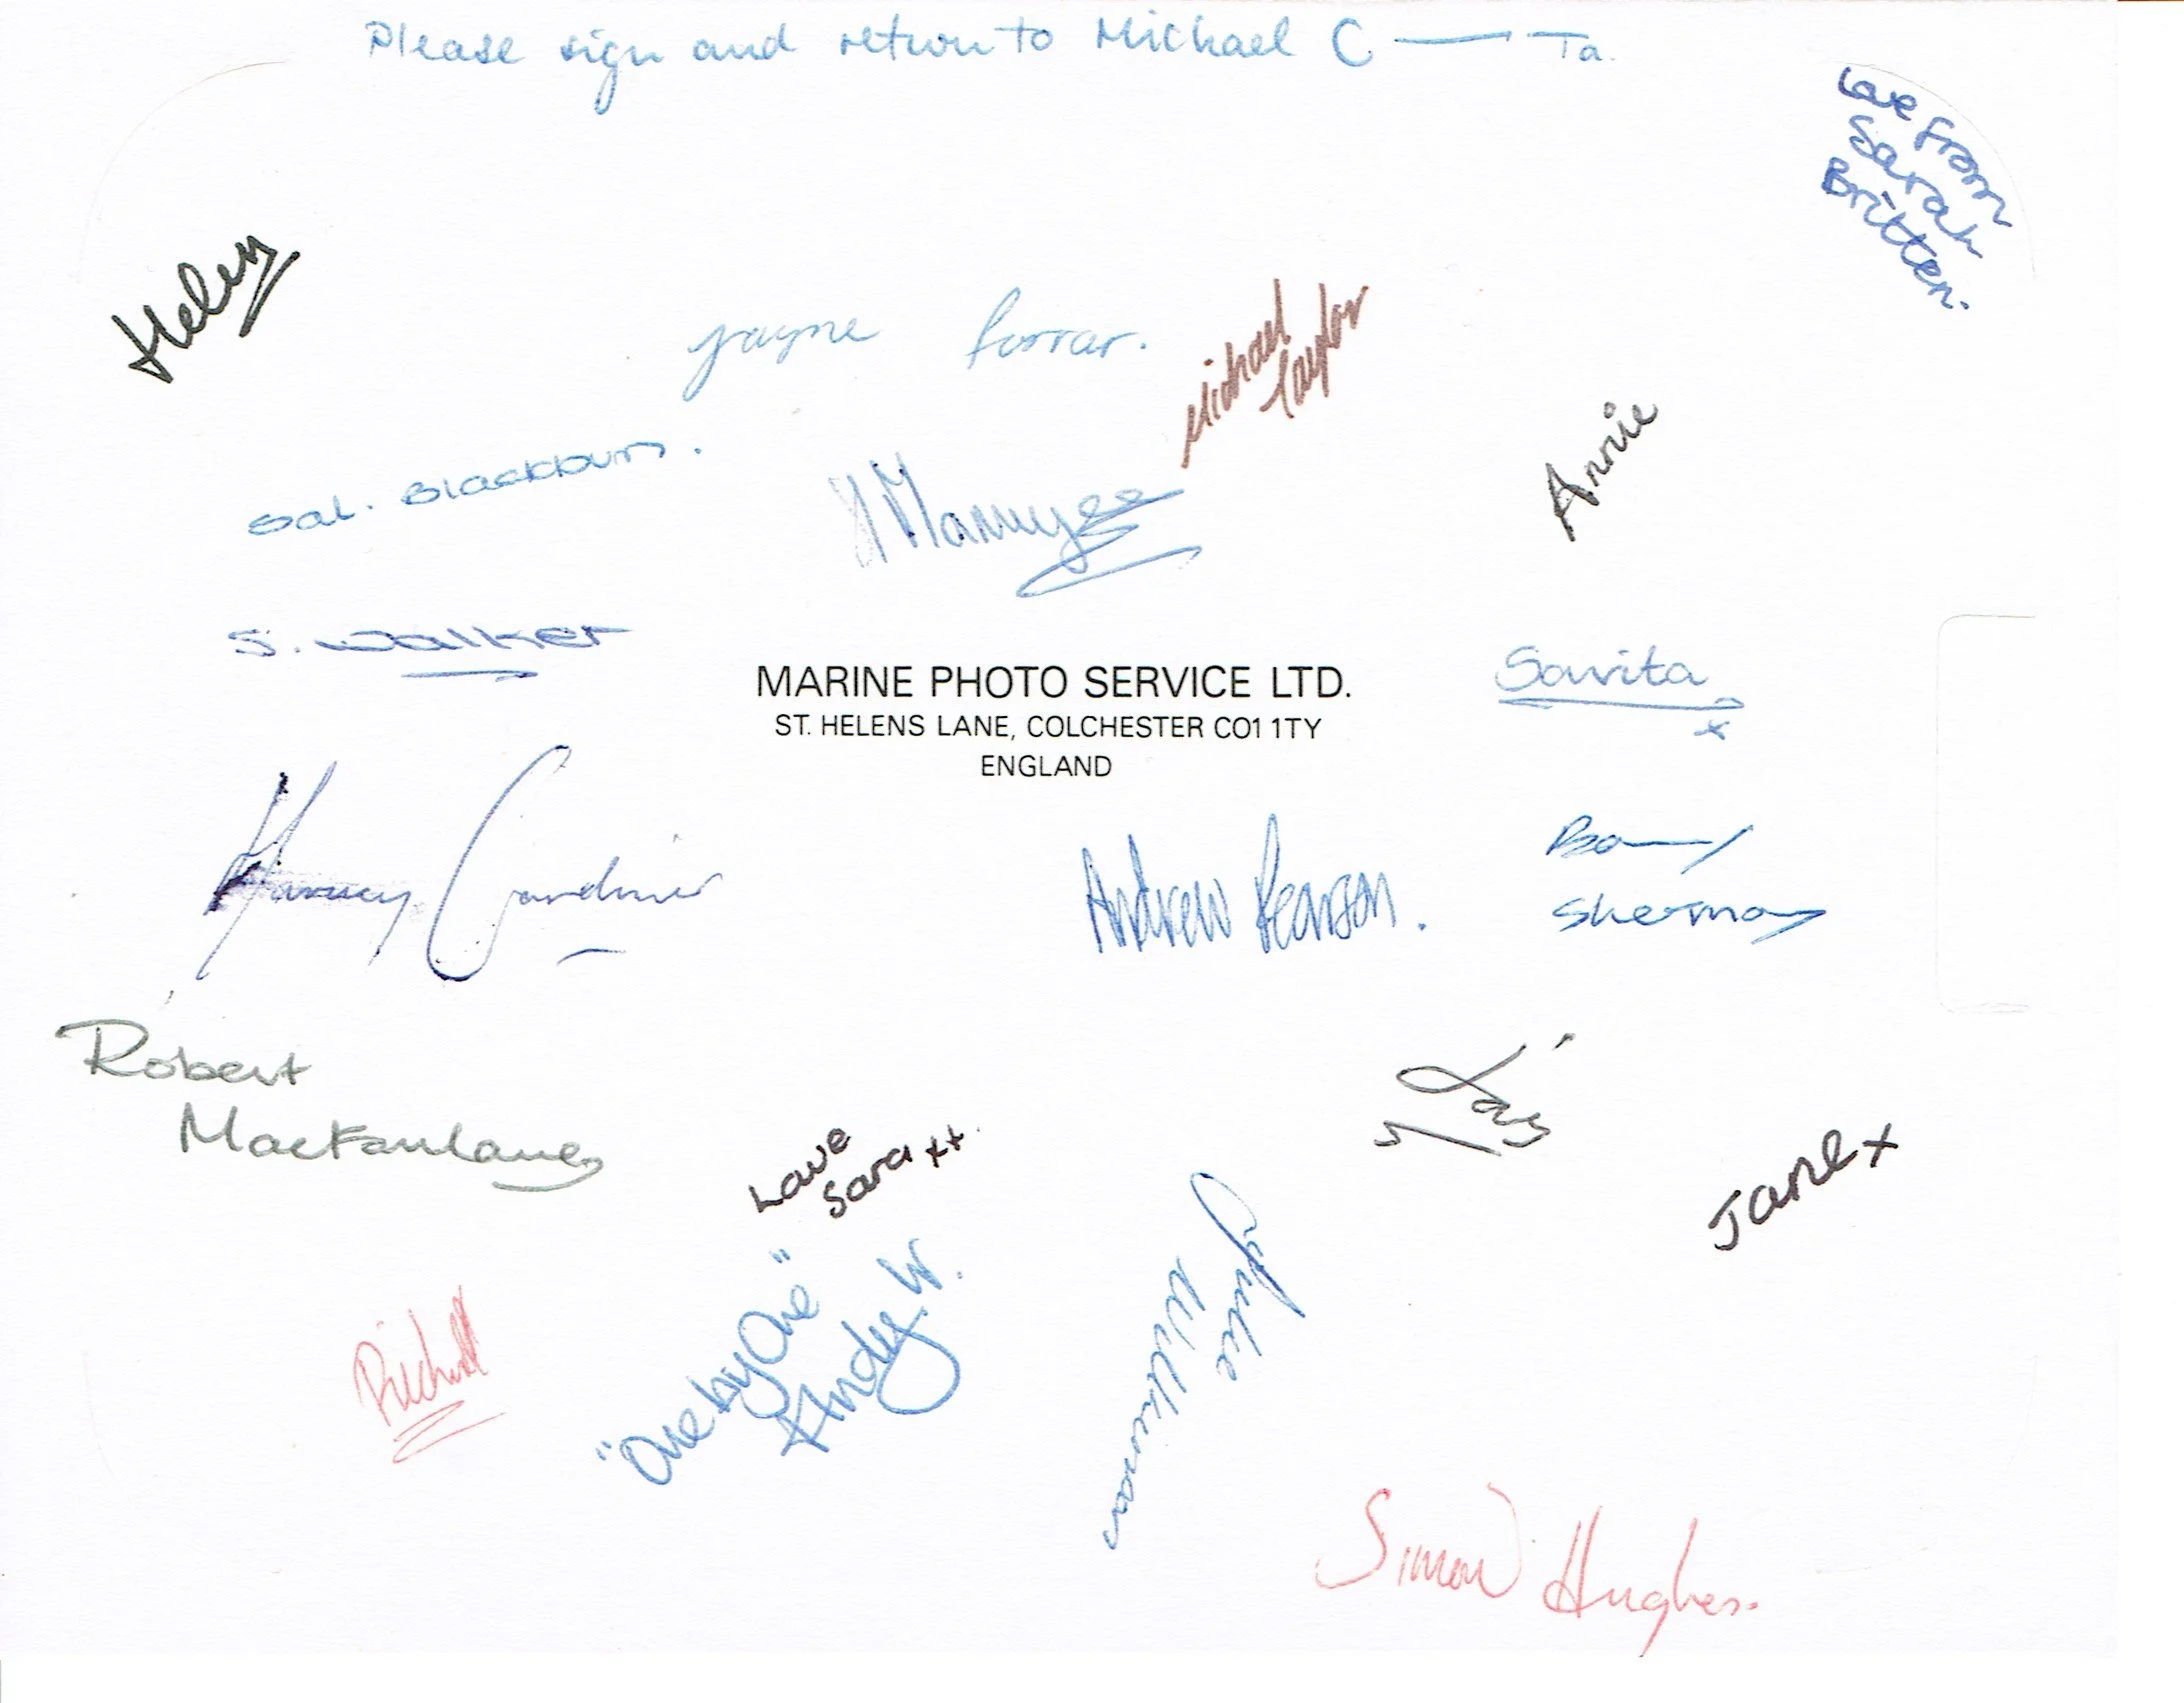 Please sign and return to Michael C — Ta.
Love from
Sarah
Britten.
Helen
Jayne Farrar.
Michael
Taylor
Annie
Sal. Blackburn.
S. Walker
Savita
x
MARINE PHOTO SERVICE LTD.
ST. HELENS LANE, COLCHESTER CO1 1TY
ENGLAND
Harvey Gardiner
Andrew Pearson.
Barry
Sherman
Robert
MacFarlane
Love
Sara xx
Jane x
"One by One"
Andy W.
Julie
Wilkinson
Richard
Simon Hughes.